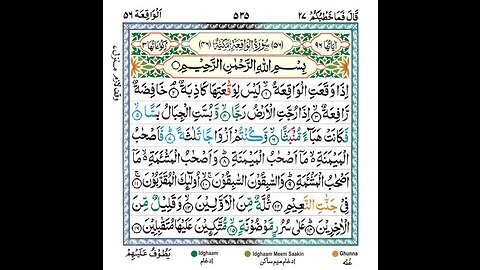 قَالَ فَمَا خَطْبُكُمْ ٢٧ ٥٣٥ اَلْوَاقِعَة ٥٦
اٰيَاتُهَا ٩٦ (٥٦) سُوْرَةُ الْوَاقِعَةِ مَكِّيَّةٌ (٤٦) رُكُوْعَاتُهَا ٣
بِسْمِ اللّٰهِ الرَّحْمٰنِ الرَّحِيْمِ
اِذَا وَقَعَتِ الْوَاقِعَةُ ۙ١ لَيْسَ لِوَقْعَتِهَا كَاذِبَةٌ ۘ٢ خَافِضَةٌ
رَّافِعَةٌ ۙ٣ اِذَا رُجَّتِ الْاَرْضُ رَجًّا ۙ٤ وَّبُسَّتِ الْجِبَالُ بَسًّا ۙ٥
فَكَانَتْ هَبَآءً مُّنْۢبَثًّا ۙ٦ وَّكُنْتُمْ اَزْوَاجًا ثَلٰثَةً ؕ٧ فَاَصْحٰبُ
الْمَيْمَنَةِ ۙ مَاۤ اَصْحٰبُ الْمَيْمَنَةِ ؕ٨ وَاَصْحٰبُ الْمَشْـَٔمَةِ ۙ مَاۤ
اَصْحٰبُ الْمَشْـَٔمَةِ ؕ٩ وَالسّٰبِقُوْنَ السّٰبِقُوْنَ ۚۙ١٠ اُولٰٓئِكَ الْمُقَرَّبُوْنَ ۚ١١
فِيْ جَنّٰتِ النَّعِيْمِ ١٢ ثُلَّةٌ مِّنَ الْاَوَّلِيْنَ ۙ١٣ وَقَلِيْلٌ مِّنَ
الْاٰخِرِيْنَ ؕ١٤ عَلٰى سُرُرٍ مَّوْضُوْنَةٍ ۙ١٥ مُّتَّكِـِٕيْنَ عَلَيْهَا مُتَقٰبِلِيْنَ ١٦
Idghaam ادغام
Idghaam Meem Saakin ادغام میم ساکن
Ghunna غنّہ
يَطُوْفُ عَلَيْهِمْ